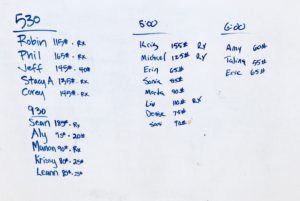 530
Robin 115# - Rx
Phil 165# - Rx
Jeff 145# - 40#
Stacy A 135#. Rx
Corey 145#. Rx
930
Sean 185#. Rx
Aly 95# - 20#
Manon 90#. Rx
Krissy 80#. 25#
Leann 85#. 5#
5:00
Kris 155# RX
Michael 125# RX
Erin 65#
Sonia 95#
Marta 90#
Liv 110# RX
75#
90#
6:00
Amy 60#
55#
Eric 65#